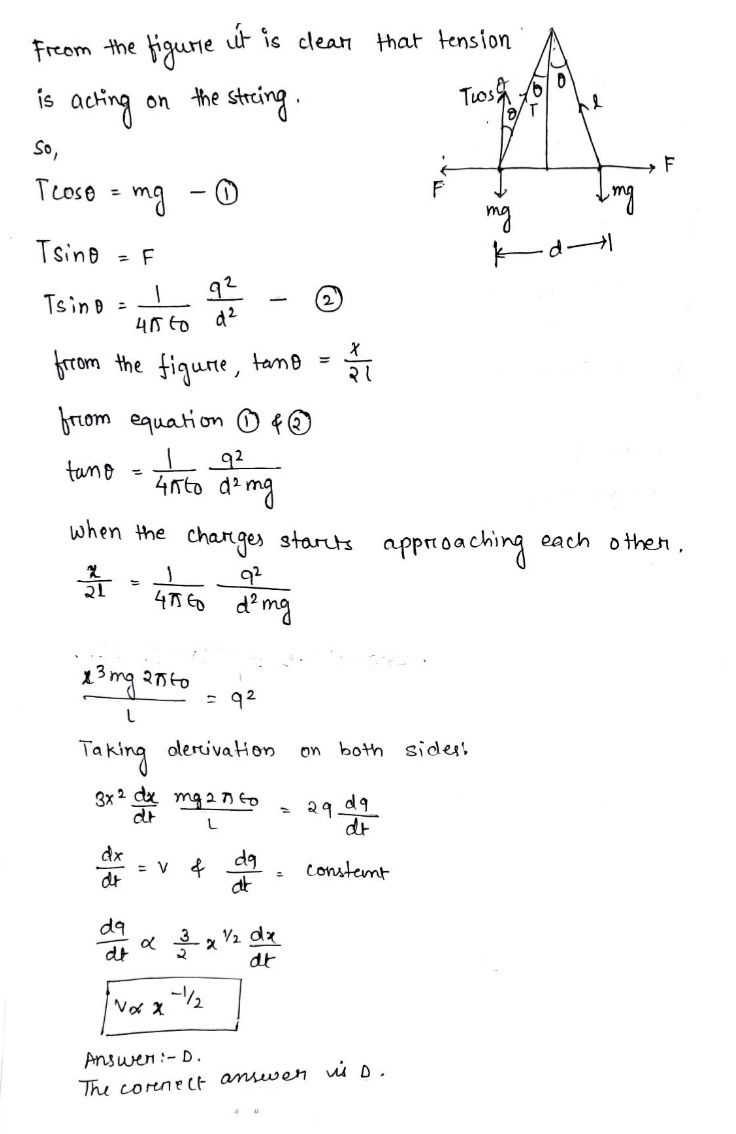 From the figure it is clear that tension
is acting on the string.
So,
Tcosθ = mg - ①
Tsinθ = F
Tsinθ = 1/4π∈0 q²/d² - ②
from the figure, tanθ = x/2l
from equation ① & ②
tanθ = 1/4π∈0 q²/d²mg
When the charges starts approaching each other.
x/2l = 1/4π∈0 q²/d²mg
x³mg 2π∈0/L = q²
Taking derivation on both sides:
3x² dx/dt mg2π∈0/L = 2q dq/dt
dx/dt = v & dq/dt = constant
dq/dt ∝ 3/2 x^1/2 dx/dt
V∝ x^-1/2
Answer:- D.
The correct answer is D.
Tcosθ
θ
T
θ
θ
l
F
F
mg
mg
d